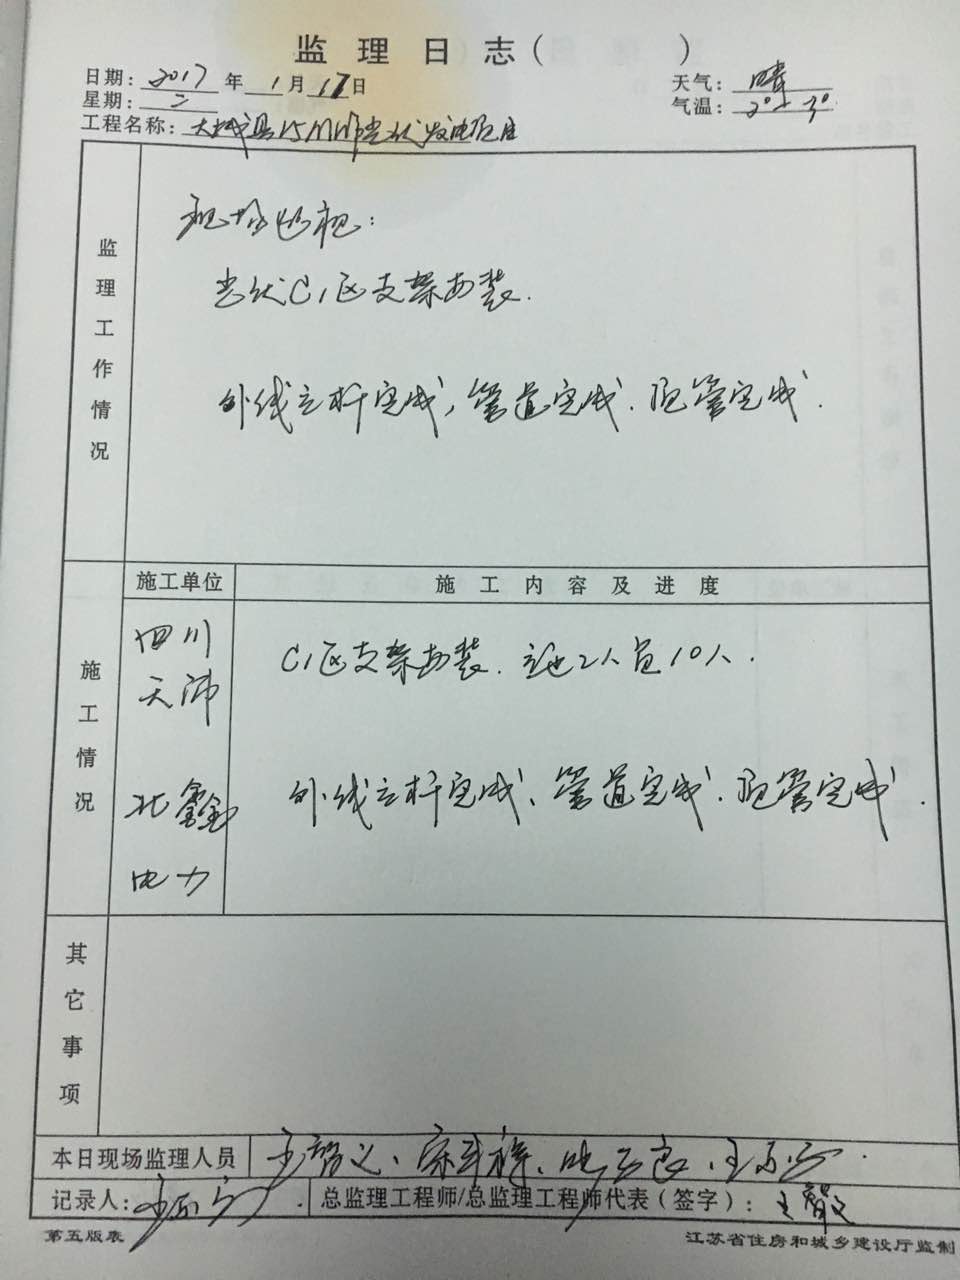 监理日志（ ）
日期：2017年1月17日
天气：晴
星期：二
气温：2°~7°
工程名称：大城县15MW光伏发电项目
监理工作情况
现场巡视：
光伏C1区支架安装.
外线立杆完成，管道完成.顶管完成.
施工单位
施工内容及进度
施工情况
四川
天沛
C1区支架安装. 2人员10人.
北鑫
电力
外线立杆完成、管道完成.顶管完成.
其它事项
本日现场监理人员 王智义、
记录人：
总监理工程师/总监理工程师代表（签字）：王智义
第五版表
江苏省住房和城乡建设厅监制